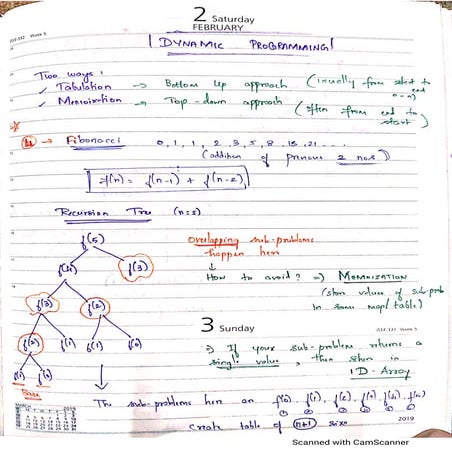 2 Saturday
FEBRUARY
Week 5
DYNAMIC PROGRAMMING
Two ways:
✓ Tabulation → Bottom Up approach (usually from start to end
0-n)
✓ Memoization → Top-down approach (often from end to start)
→ Fibonacci 0, 1, 1, 2, 3, 5, 8, 13, 21 ...
(addition of previous 2 nos.)
f(n) = f(n-1) + f(n-2)
Recursion Tree (n=5)
f(5)
f(4) f(3)
f(3) f(2)
f(2) f(1) f(1) f(0)
f(1) f(0)
overlapping sub-problems
happen here
↓
How to avoid? ⇒ MEMOIZATION
(store values of sub-prob
in some map/table)
3 Sunday
034-331 Week 5
If your sub-problem returns a
single value, then store in
1D-Array
The sub-problems here are f(0), f(1), f(2), f(3), f(4), f(5)
create table of (n+1) size
2019
2019
Scanned with CamScanner